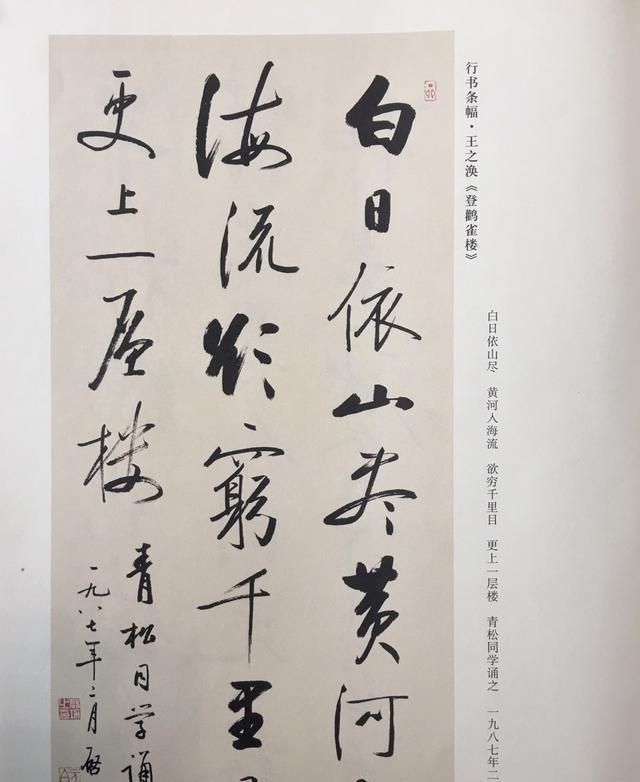 行书条幅·王之涣《登鹳雀楼》
白日依山尽 黄河入海流 欲穷千里目 更上一层楼 青松同学诵之 一九八七年二
白日依山尽黄河
海流欲窮千里
更上一层楼
青松同学诵
一九八七年二月启